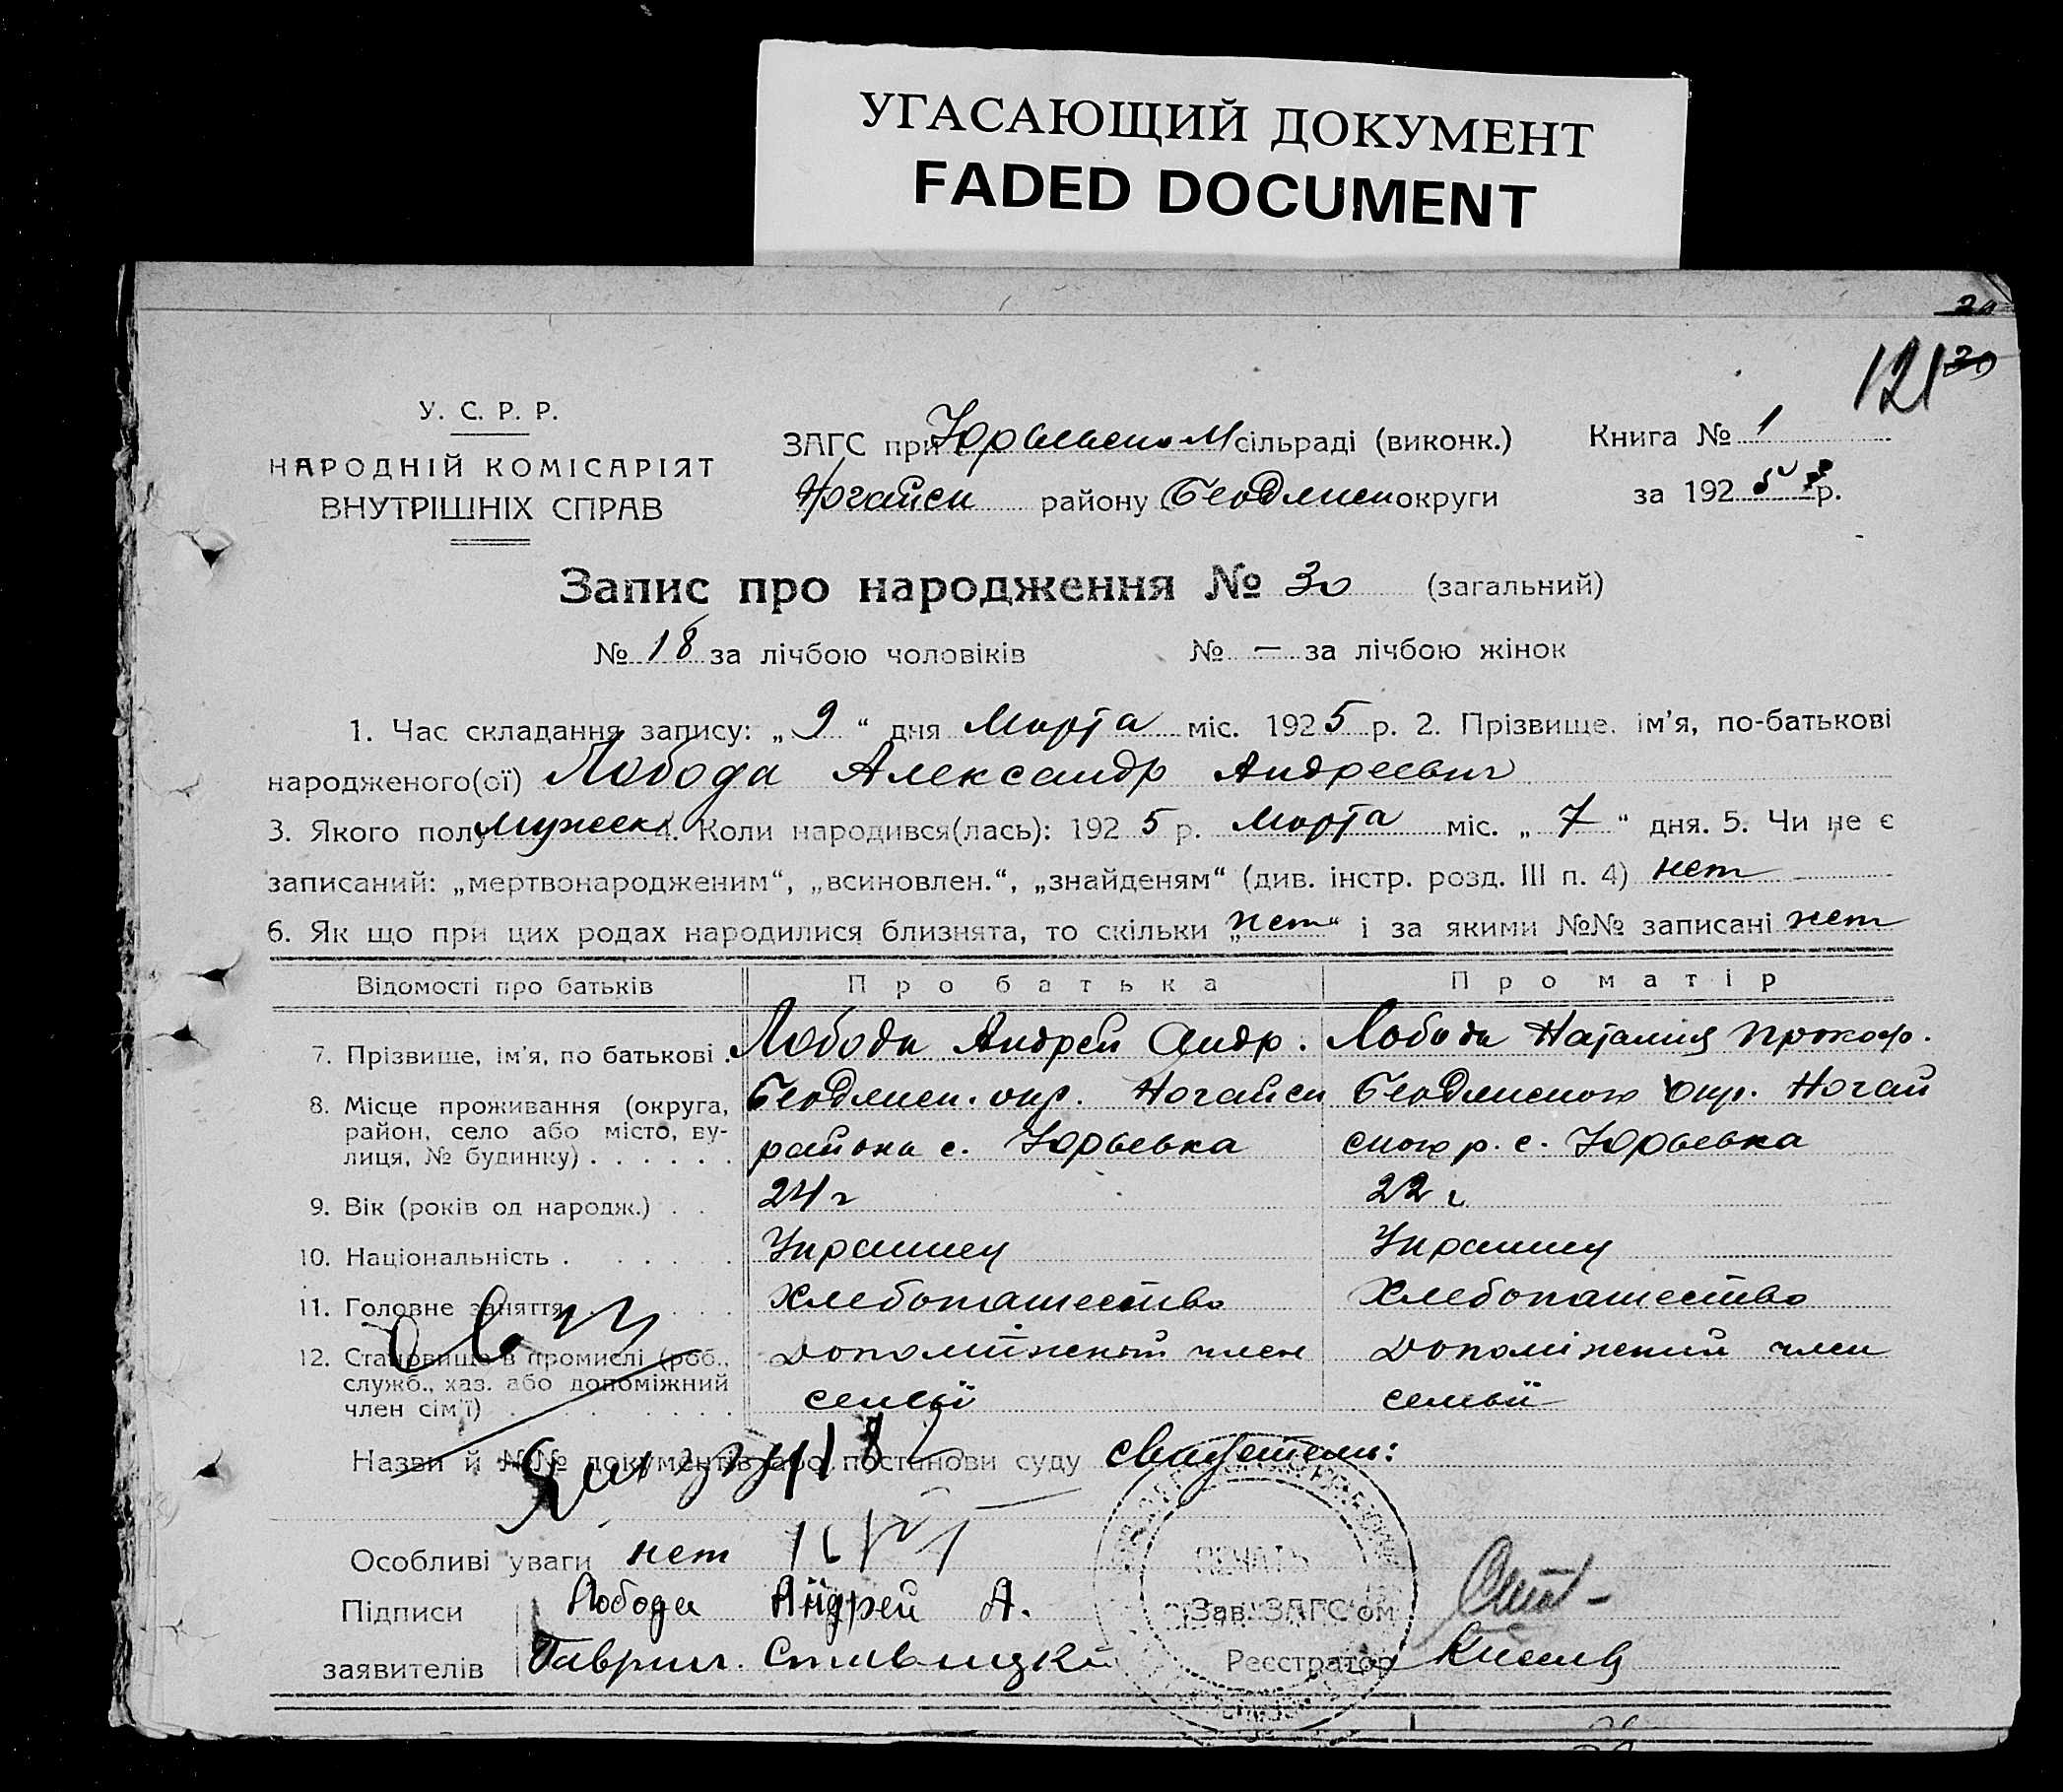 УГАСАЮЩИЙ ДОКУМЕНТ
FADED DOCUMENT
20
121 30
У. С. Р. Р.
НАРОДНІЙ КОМІСАРІЯТ
ВНУТРІШНІХ СПРАВ
ЗАГС при Юрьевском сільраді (виконк.) Книга № 1
Ногайск району Бердянск округи за 1925 р.
Запис про народження № 30 (загальний)
№ 18 за лічбою чоловіків № — за лічбою жінок
1. Час складання запису: „9“ дня Марта міс. 1925 р. 2. Прізвище, ім'я, по-батькові
народженого(ої) Лобода Александр Андреевич
3. Якого полу мужск 4. Коли народився(лась): 1925 р. Марта міс. „7“ дня. 5. Чи не є
записаний: „мертвонародженим“, „всиновлен.“, „знайденям“ (див. інстр. розд. III п. 4) нет
6. Як що при цих родах народилися близнята, то скільки „нет“ і за якими №№ записані нет
Відомості про батьків Про батька Про матір
7. Прізвище, ім'я, по батькові . Лобода Андрей Андр. Лобода Наталия Прокоф.
8. Місце проживання (округа, район, село або місто, вулиця, № будинку) . . . . . . Бердянск. окр. Ногайск Бердянского окр. Ногай
района с. Юрьевка ского р. с. Юрьевка
9. Вік (років од народж.) . . 24 г 22 г
10. Національність . . . . . Украинец Украинец
11. Головне заняття . . . . Хлебопашество Хлебопашество
12. Становище в промислі (роб., служб., хаз. або допоміжний член сім'ї) . . . . Допоміжний член Допоміжний член
семьї семьї
Назви й №№ документів або постанови суду свидетели:
Особливі уваги нет
Підписи Лобода Андрей А. Зав. ЗАГС'ом
заявителів Гаврил. Реєстратор
ПЕЧАТЬ